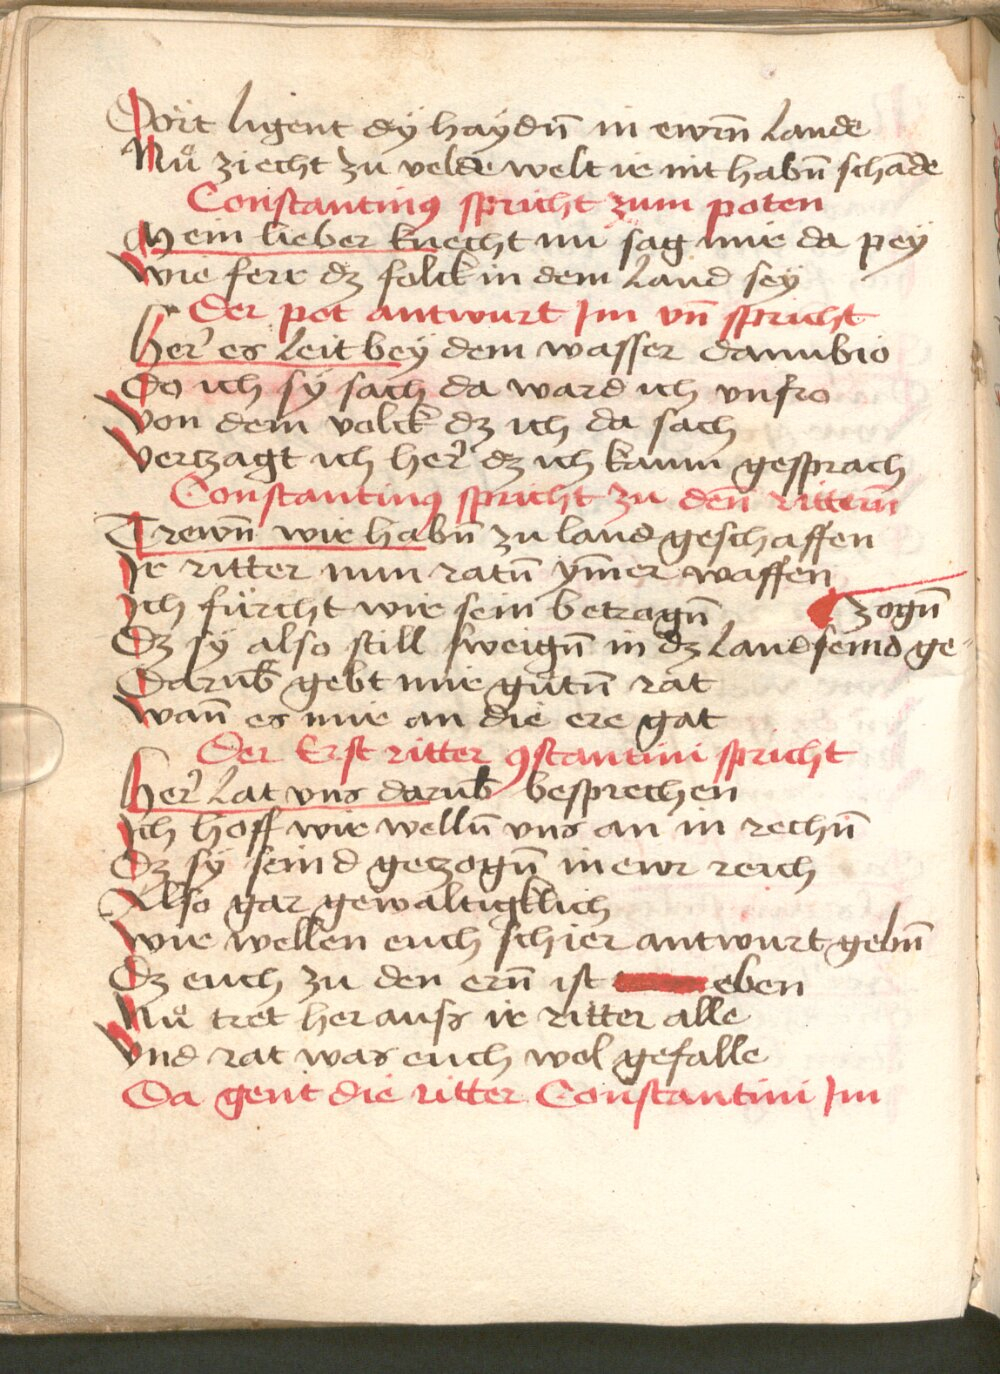 Dort ligent dy haydn̄ in ewrn̄ lande
Nů ziecht zu velde welt ir nit habn̄ schāde
Constantinꝯ spricht zum poten
Mein lieber knecht nu sag mir da pey
Wie ferr dz folck in dem land sey
Der pot antwurt Im vn̄ spricht
Her̕ es leit bey dem wasser danubio
Do ich sy sach da ward ich vnfro
Von dem volck dz ich da sach
Vertzagt ich her̕ dz ich kaum gesprach
Constantinꝯ spricht zu den̄ rittern̄
Trewn̄ wir habn̄ zu land geschaffen
Ir ritter nun ratn̄ ym̄er waffen
Ich fürcht wir sein betrogn̄
zogn̄
Dz sy also still sweign̄ in dz land seind ge-
Darub̄ gebt mir gutn̄ rat
Wan̄ es mir an die ere gat
Der Erst ritter ꝯstantini spricht
Her̕ lat vns darub̄ besprechen
Ich hoff wir welln̄ vns an in rechn̄
Dz sy seind getzogn̄ in ewr reich
Also gar gewaltigklich
Wir wellen euch schier antwurt gebn̄
Dz euch zu den ern̄ ist eben
Nů tret herauss ir ritter alle
Vnd rat was euch wol gefalle
Da gent die ritter Constantini Im